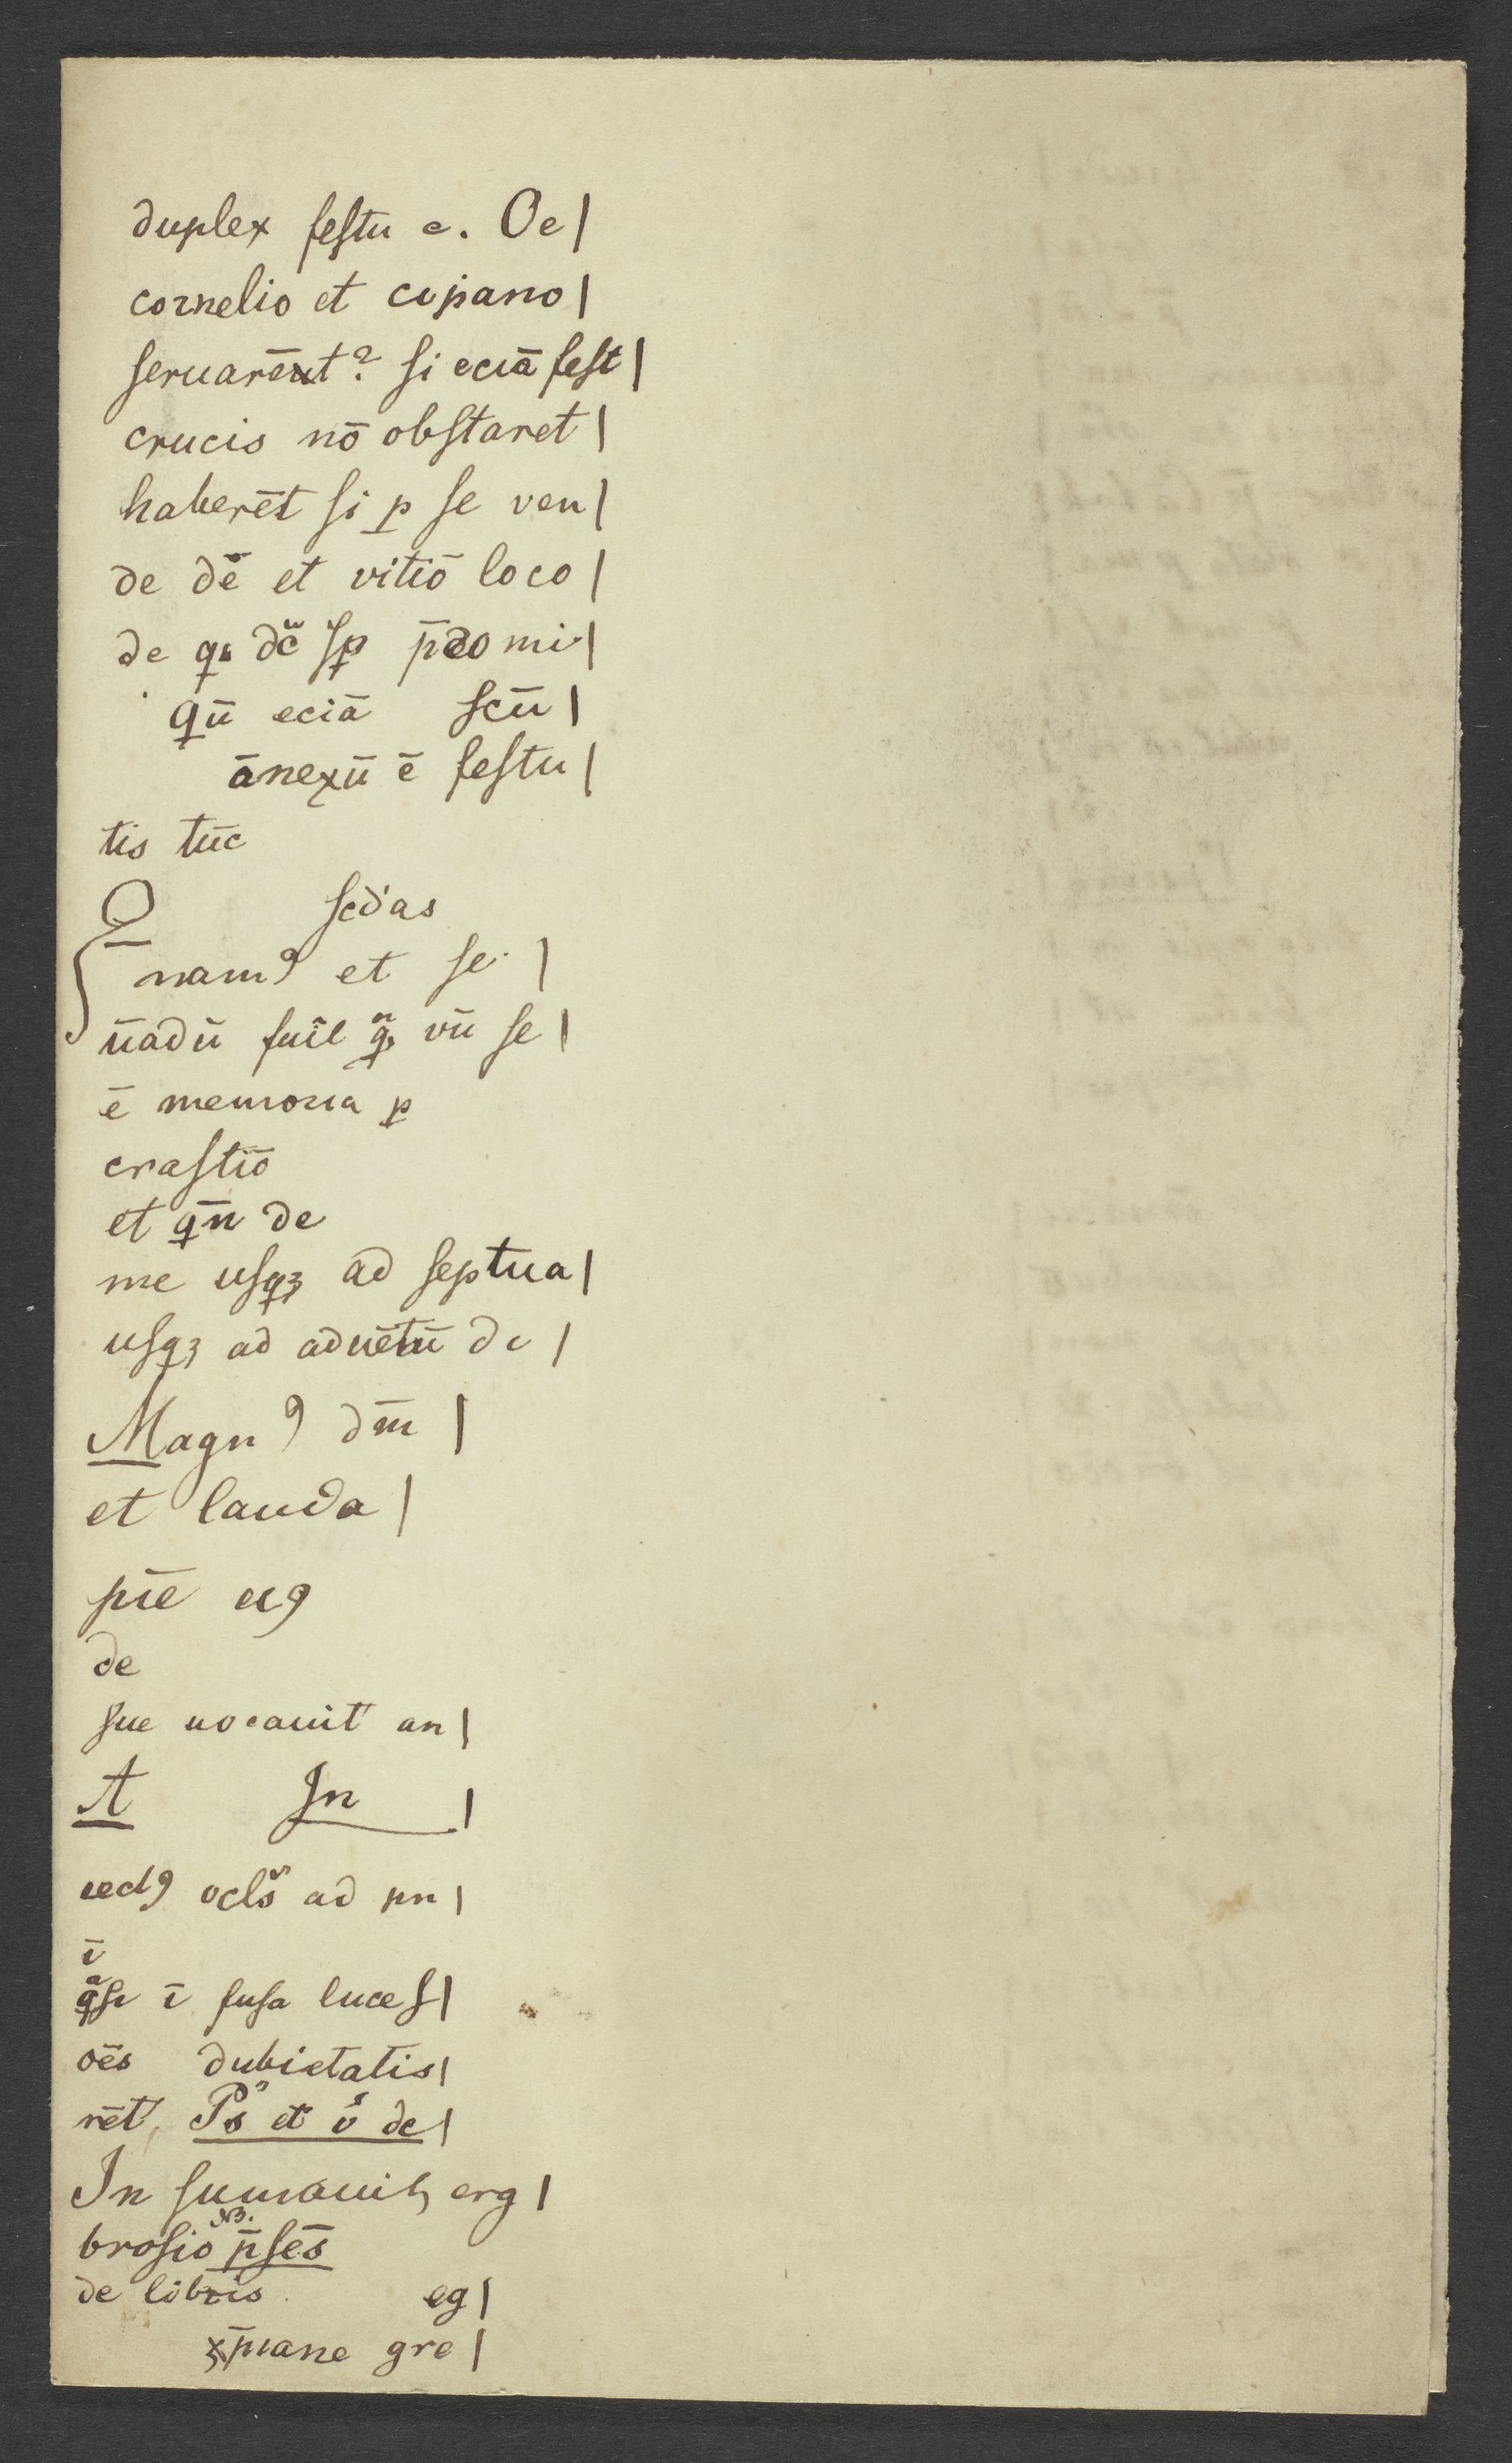 duplex festu e. Oe|
cornelio et cipano|
seruarēnt? si eciā fest|
crucis nō obstaret|
haberēt si p se ven|
de dē et vitiō loco|
de q dc̄ sp p̄ꝛo mi|
qū eciā scū|
ānexū ē festu|
tis tūc
Q scd'as
nam9 et se|
ūadū fuīt q vū se|
ē memoria p
crastīo
et qn̄ de
me usqꝫ ad septua|
usqꝫ ad aduētū de|
Magn9 dm̄|
et lauda|
pīe eu9
de
sue uocauit an|
A In|
ocls ad pn|
ī
qsi ī fusa luces|
oēs dubietatis|
rēt, Ps et v de|
In erg|
NB.
brosio p̄sēs
de libris eg|
xp̄iane gre|